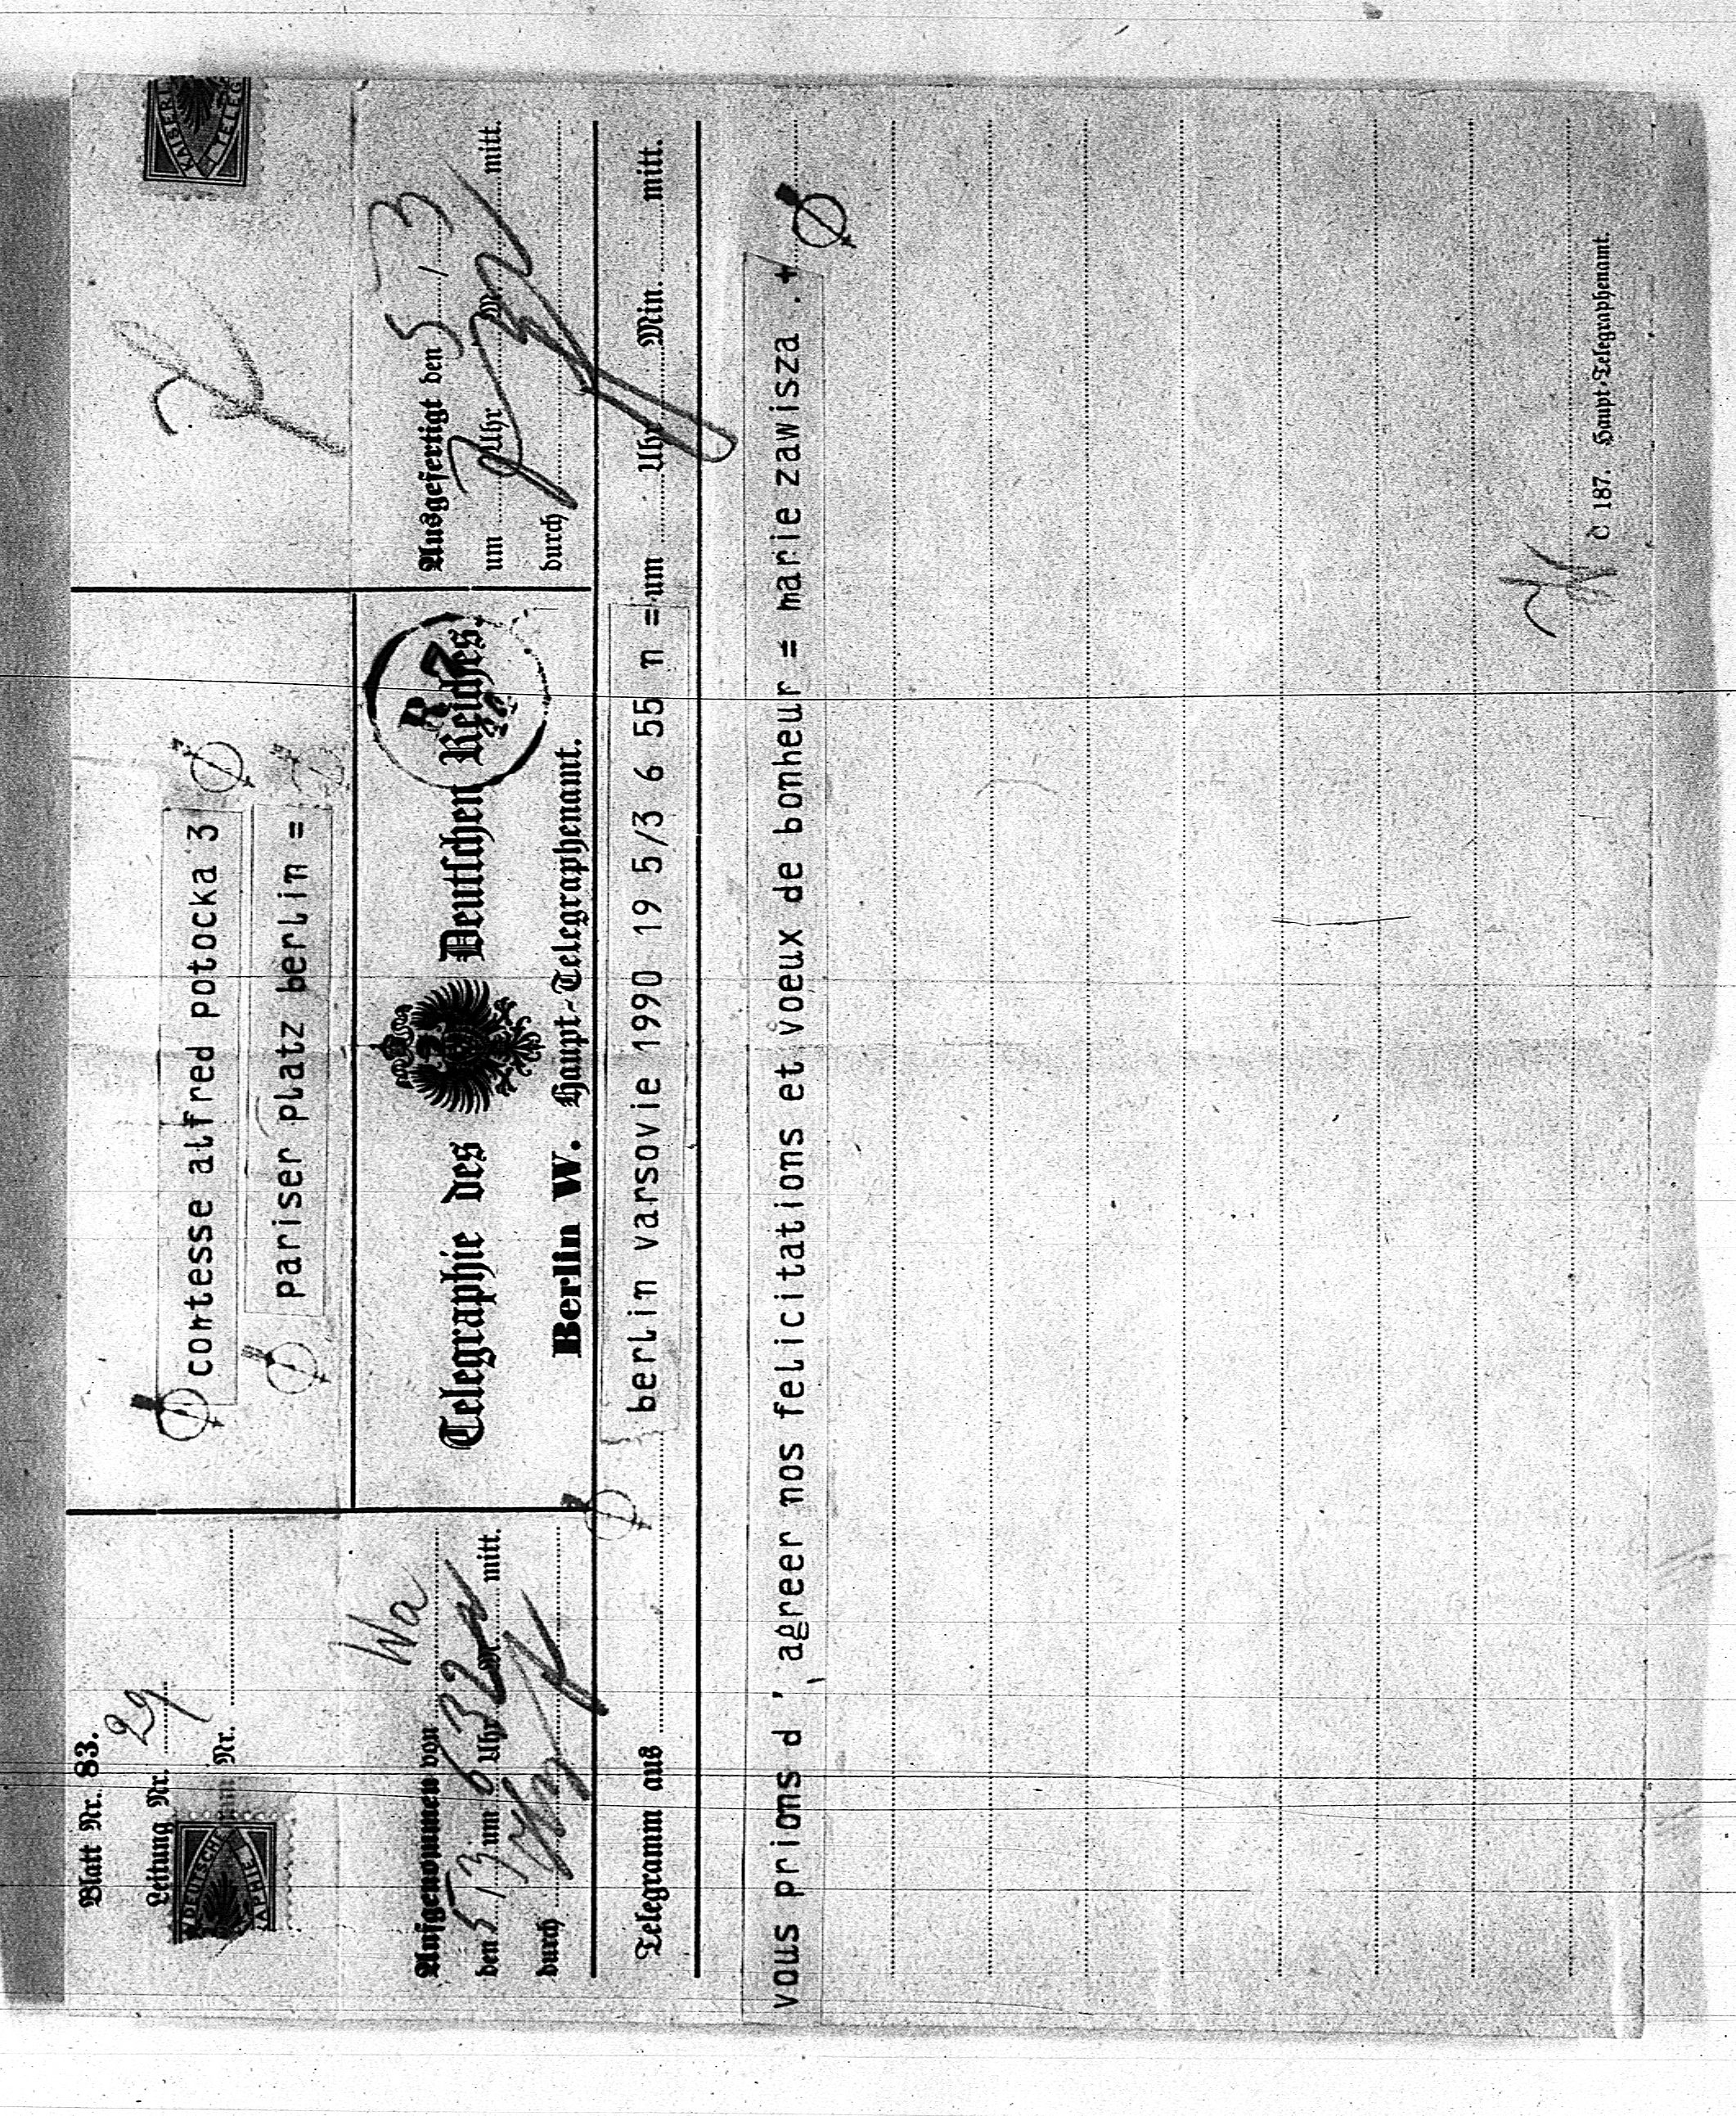 Blatt Nr. 83.
Leitung Nr. 29
Nr.
DEUTSCHE
APHIE
comtesse alfred potocka 3
pariser platz berlin =
KAISERL
TELEG
Aufgenommen von Wa
den 5/3 um 6 Uhr 32 M. mitt.
durch
Telegraphie des Deutschen Reiches.
Berlin W. Haupt-Telegraphenamt.
R
Ausgefertigt den 5/3
um 7 Uhr M. mitt.
durch
Telegramm aus berlin varsovie 1990 19 5/3 6 55 n = um Uhr Min. mitt.
vous prions d ' agreer nos felicitations et voeux de bonheur = marie zawisza . +
C 187. Haupt-Telegraphenamt.